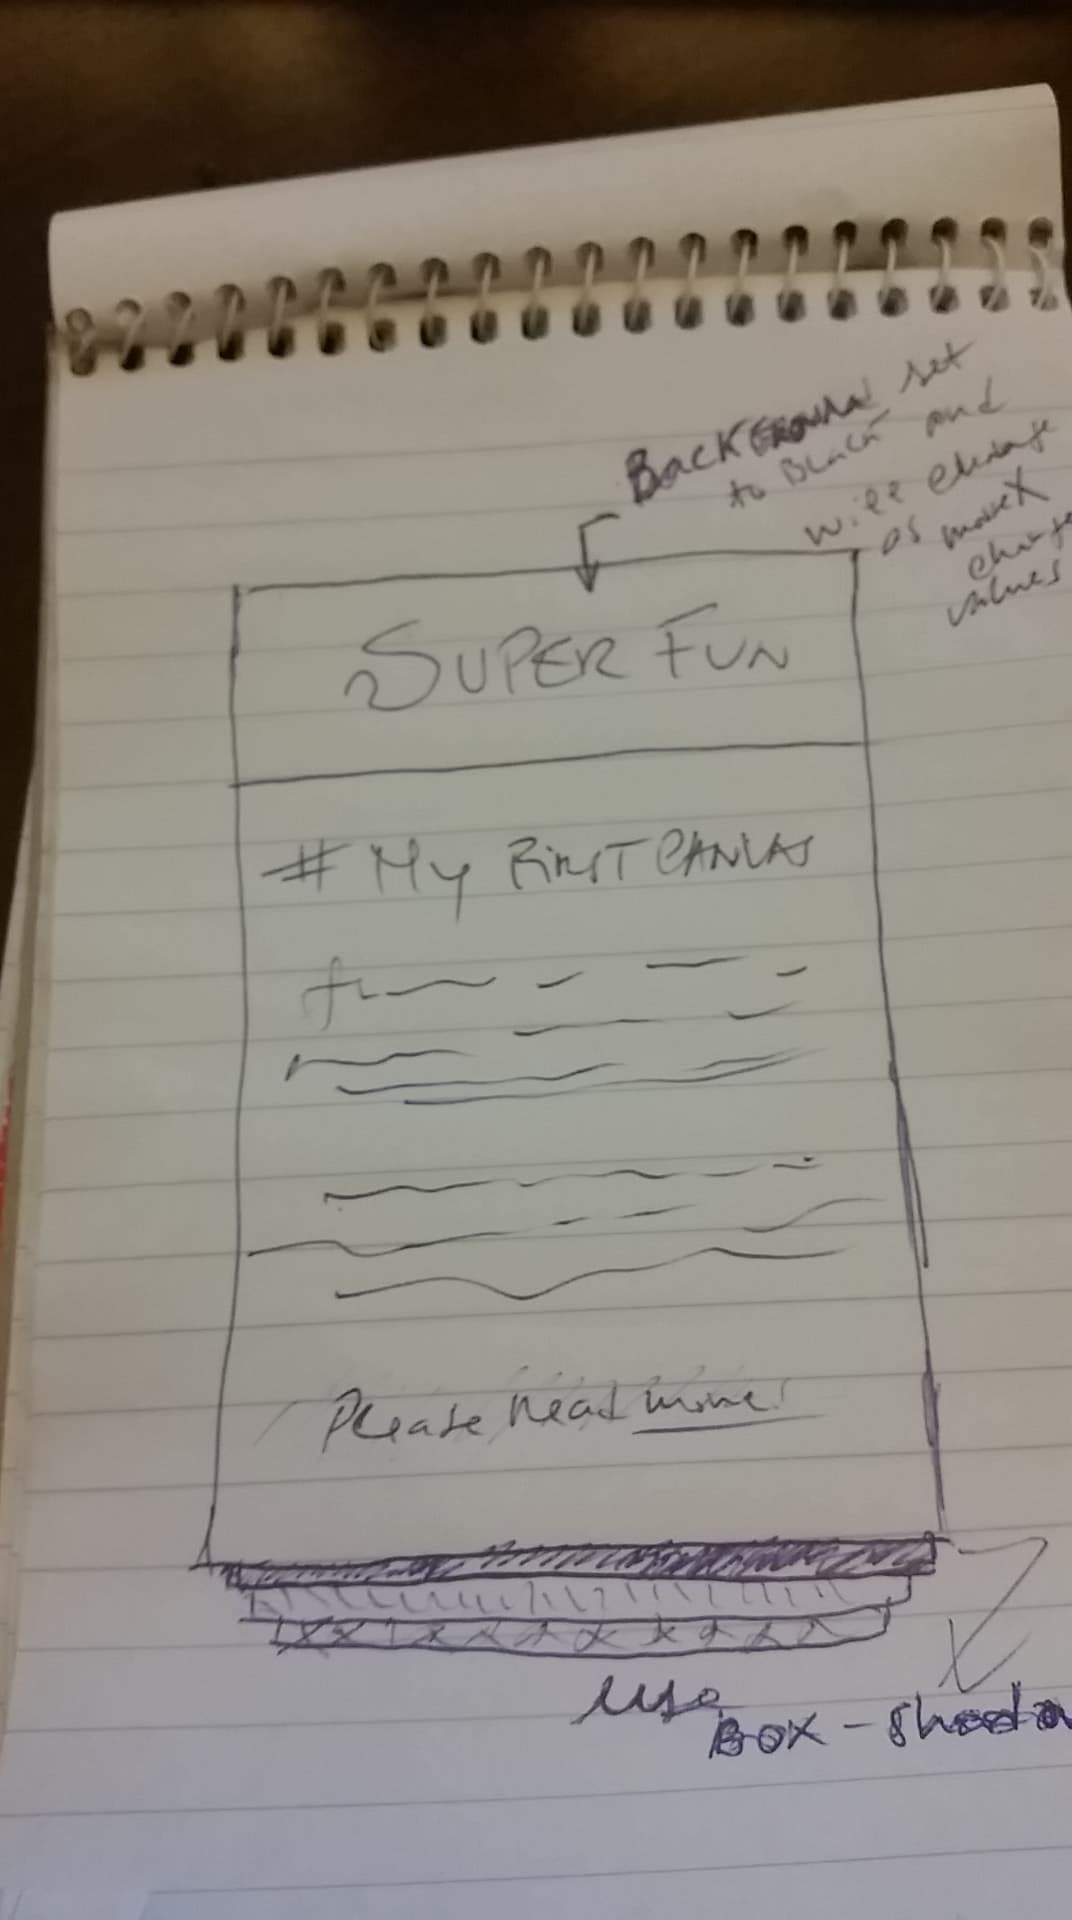 Background set
to Black and
will change
as mouseX
change
values
SUPER FUN
# My First Canvas
Please Read more!
use
Box-shado